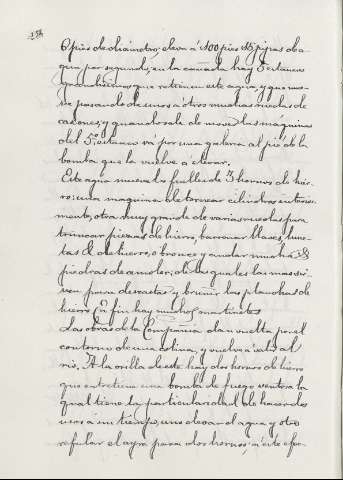 158
6 pies de diámetro, eleva á 100 pies 15 pipas de a-
gua por segundo, en la cañada hay 5 estancos
grandísimos que retienen esta agua y que mue-
ve pasando de unos a otros muchas ruedas de
cajones, y quando sale de mover las máquinas
del 5.º estanco vá por una galería al pié de la
bomba que la vuelve a elevar.
Este agua mueve los fuelles de 3 hornos de hier-
ro; una maquina de tornear cilindros interior-
mente, otra muy grande de varias ruedas para
tornear piezas de hierro, barrenar llaves, lune-
tas &. de hierro, o bronce y andar muchas
piedras de amolar, de las quales las mas sir-
ven para desvastar y bruñir las planchas de
hierro. En fin hay muchos martinetes.
Las obras de la Compañia dan vuelta por el
contorno de una colina, y vuelve á salir al
rio. A la orilla de este hay dos hornos de hierro
que entretiene una bomba de fuego
qual tiene la particularidad de hacer dos
usos á un tiempo, uno elevar el agua y otro
refular el ayre para dos hornos; á este efec-